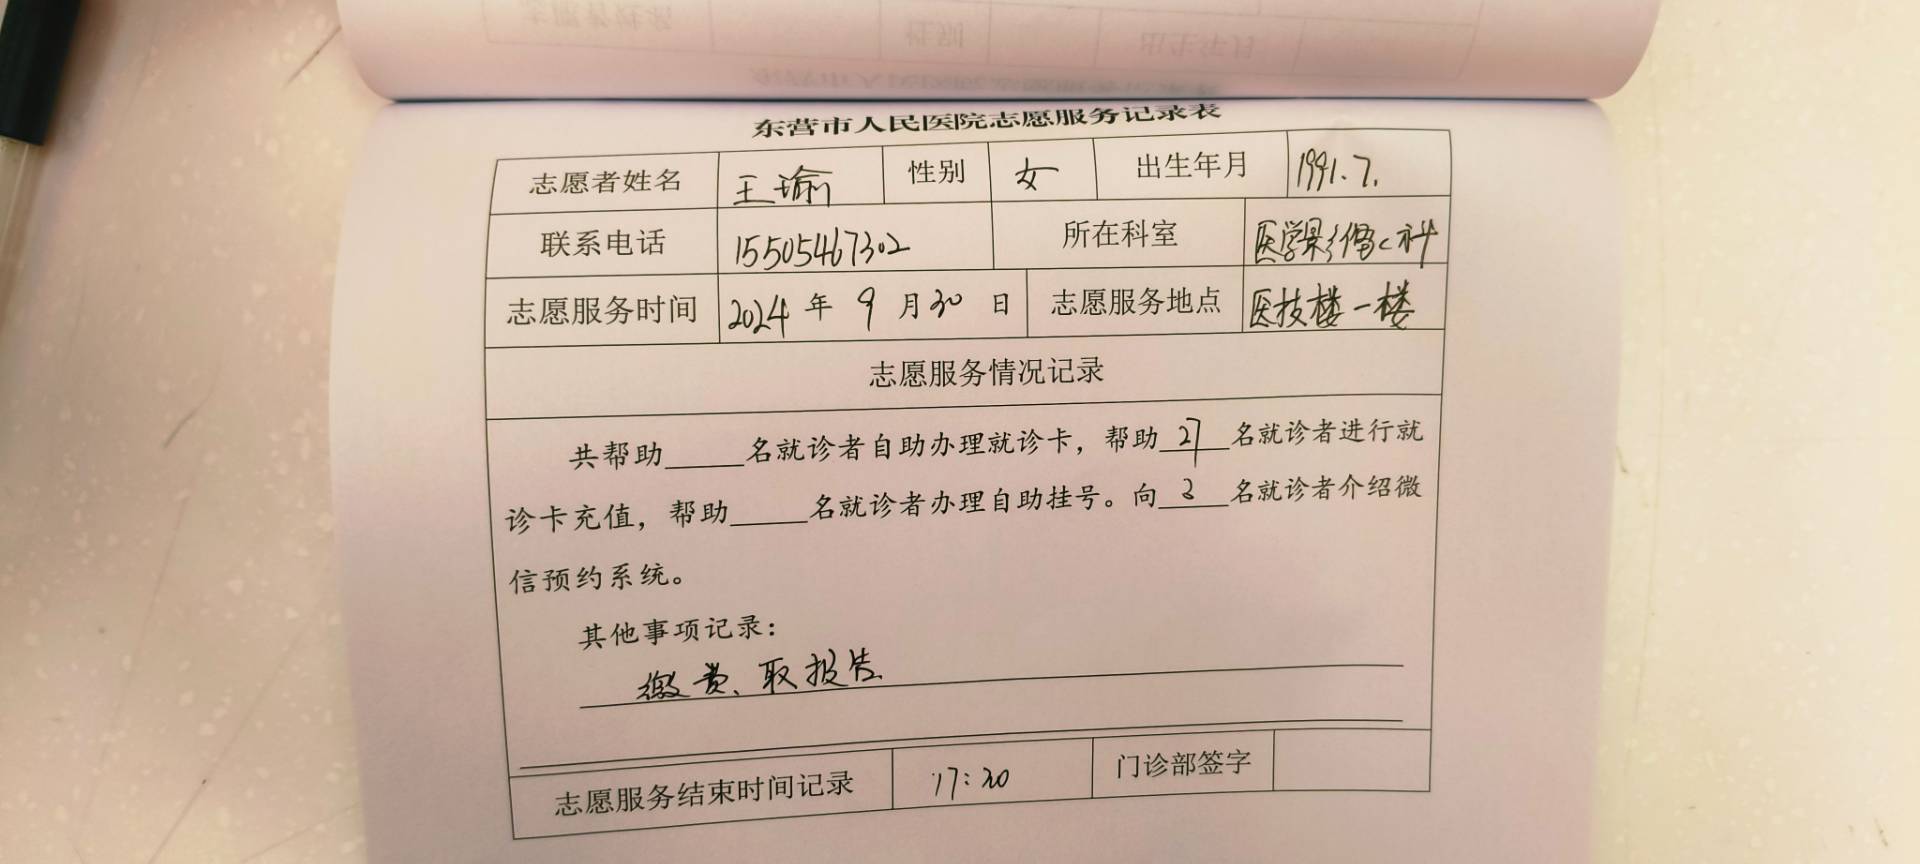 东营市人民医院志愿服务记录表
志愿者姓名 王瑜 性别 女 出生年月 1991.7.
联系电话 15505467302 所在科室 医学影像科
志愿服务时间 2024 年 9 月 30 日 志愿服务地点 医技楼一楼
志愿服务情况记录
共帮助_____名就诊者自助办理就诊卡，帮助 27 名就诊者进行就
诊卡充值，帮助_____名就诊者办理自助挂号。向 3 名就诊者介绍微
信预约系统。
其他事项记录：
缴费、取报告
志愿服务结束时间记录 17:20 门诊部签字